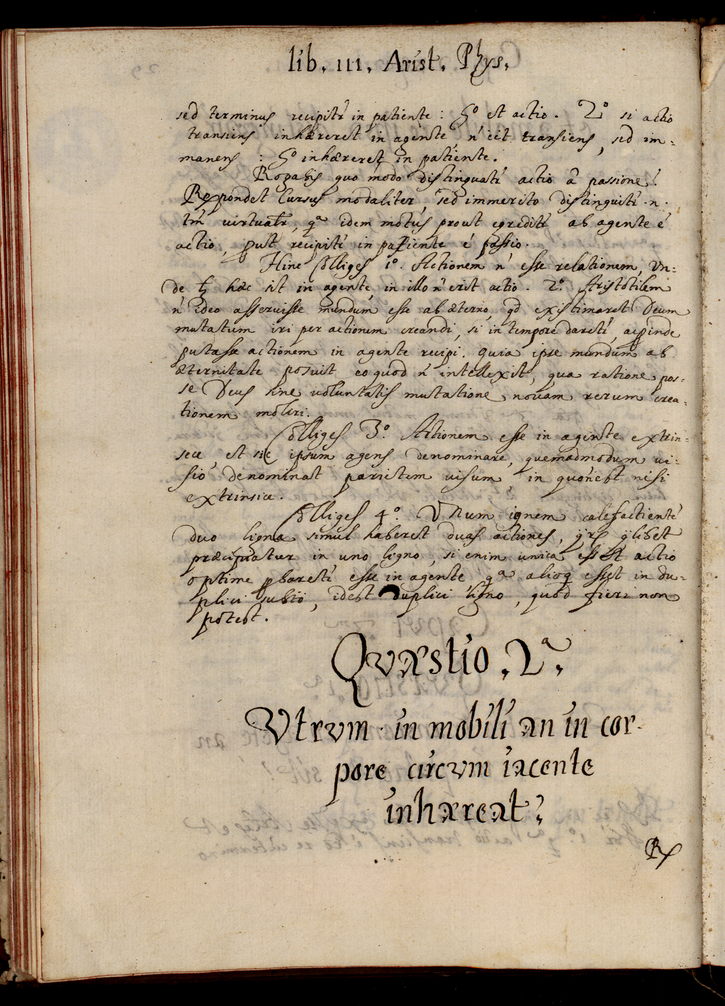 lib. III. Arist. Phys.
sed terminus recipitr in patiente: go et actio. 2o si actio
transiens inhæreret in agente n' eēt transiens, sed im-
manens: go inhæreret in patiente.
Rogabis quo modo distinguat' actio à passione?
Respondet Cursus modaliter, sed immerito distinguit' n.
tm̄ virtualr, qa idem motus prout egredit' ab agente é
actio, put recipit' in patiente é passio.
Hinc Colliges 1o. Actionem n' esse relationem, Un-
de hæc sit in agente, in illo n' erit actio. 2o. Aristotilem
n' ideo asseruisse mundum esse ab æterno, qd existimaret Deum
mutatum iri per actionem creandi, si in tempore daret',
putasse actionem in agente recipi. quia ipse mundum ab
æternitate posuit eo quod n' intellexit, qua ratione pos-
se Deus sine voluntatis mutatione, novam rerum crea-
tionem moliri.
Colliges 3o. Actionem esse in agente extrin-
sece, et sic ipsum agens denominare, quemadmodum vi-
sio denominat parietem visum, in quo n' est nisi
extrinsice.
Colliges 4o. Unum ignem calefacient'
duo ligna simul haberet duas actiones, qlibet
præcipiatur in uno ligno, si enim unica esset actio
optime pbaret' esse in agente, qa alioq esset in du-
plici subto, idest duplici ligno, quod fieri non
potest.
Quæstio. 2a.
Utrum in mobili an in cor-
pore circum iacente
inhæreat?
Rx